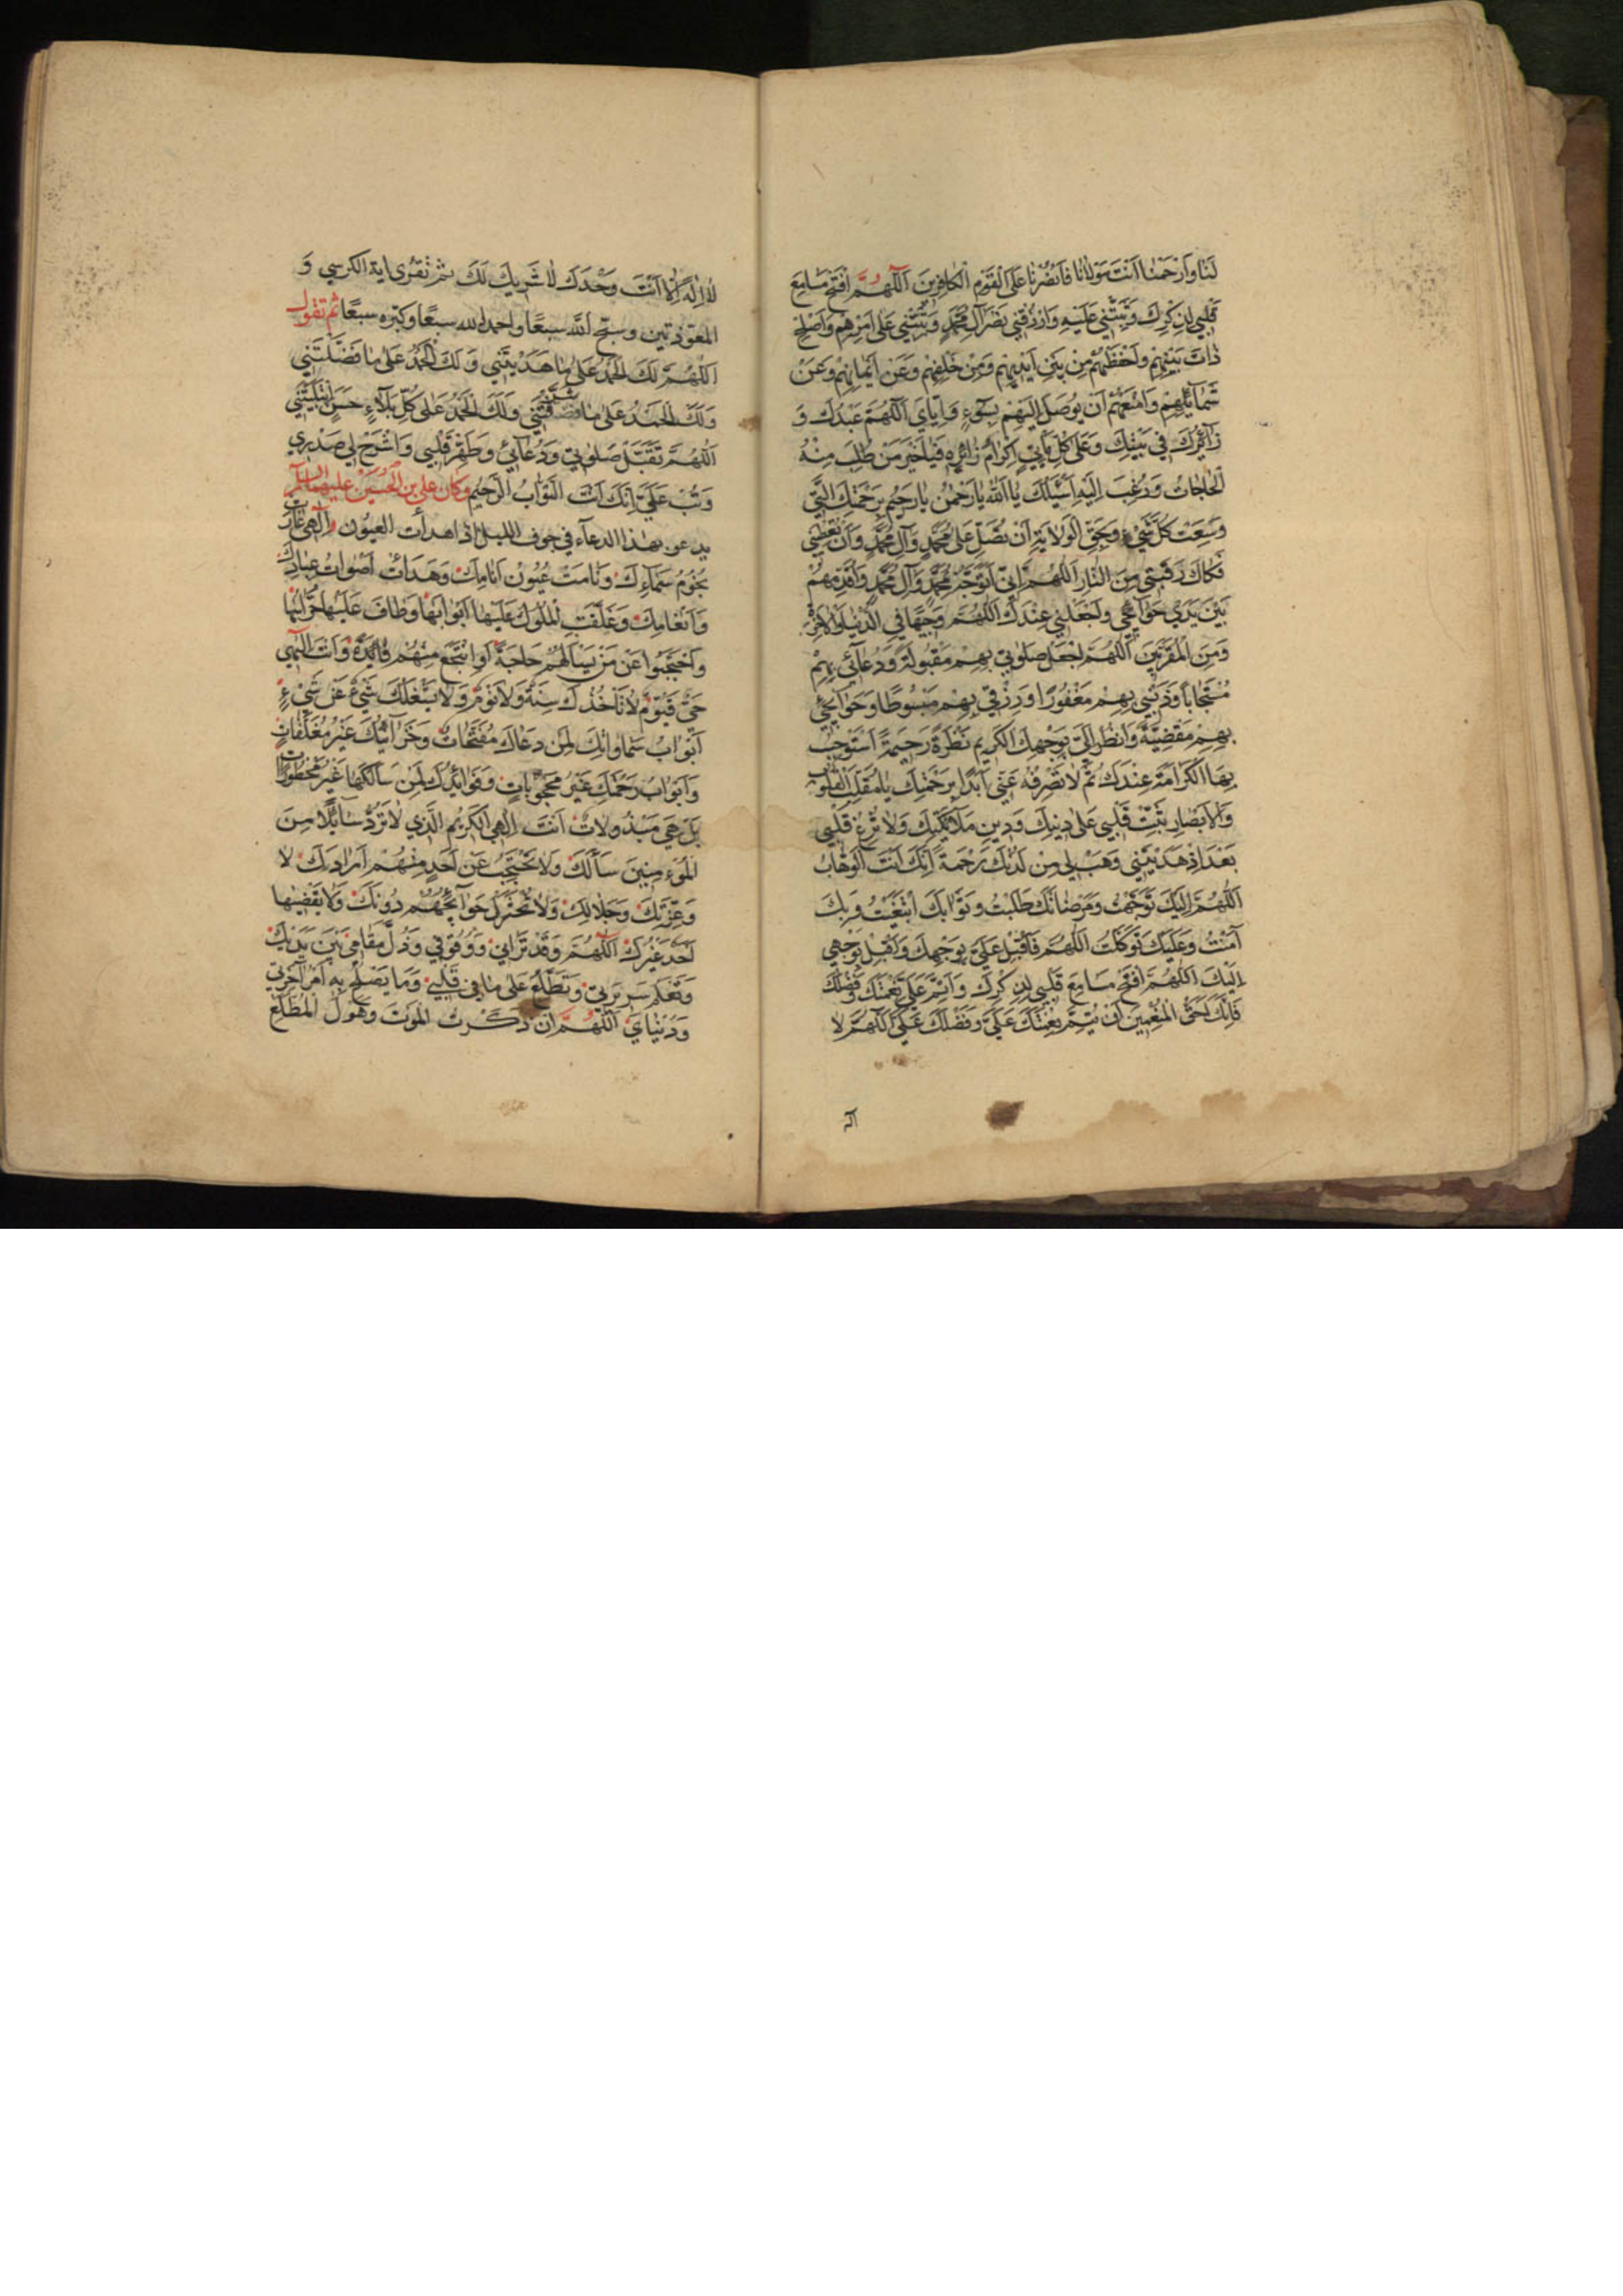 لَنَا وَارْحَمْنَا اَنْتَ مَوْلَانَا فَانْصُرْنَا عَلَى الْقَوْمِ الْكَافِرِينَ اَللّٰهُمَّ افْتَحْ مَسَامِعَ
قَلْبِي لِذِكْرِكَ وَثَبِّتْنِي عَلَيْهِ وَارْزُقْنِي نَصْرَ آلِ مُحَمَّدٍ وَثَبِّتْنِي عَلَى اَمْرِهِمْ وَاصْلِحْ
ذَاتَ بَيْنِهِمْ وَاحْفَظْهُمْ مِنْ بَيْنِ اَيْدِيهِمْ وَمِنْ خَلْفِهِمْ وَعَنْ اَيْمَانِهِمْ وَعَنْ
شَمَائِلِهِمْ وَامْنَعْهُمْ اَنْ يُوصَلَ اِلَيْهِمْ بِسُوءٍ وَاِيَّايَ اَللّٰهُمَّ عَبْدُكَ وَ
زَائِرُكَ فِي بَيْتِكَ وَعَلَى كُلِّ مَأْتِيٍّ اِكْرَامُ زَائِرِهِ فَيَا خَيْرَ مَنْ طُلِبَ مِنْهُ
الْحَاجَاتُ وَرُغِبَ اِلَيْهِ اَسْئَلُكَ يَا اَللّٰهُ يَا رَحْمٰنُ يَا رَحِيمُ بِرَحْمَتِكَ الَّتِي
وَسِعَتْ كُلَّ شَيْءٍ وَبِحَقِّ الْوَلَايَةِ اَنْ تُصَلِّ عَلَى مُحَمَّدٍ وَآلِ مُحَمَّدٍ وَاَنْ تُعْطِيَنِي
فَكَاكَ رَقَبَتِي مِنَ النَّارِ اَللّٰهُمَّ اِنِّي اَتَوَجَّهُ بِمُحَمَّدٍ وَآلِ مُحَمَّدٍ وَاُقَدِّمُهُمْ
بَيْنَ يَدَيْ حَوَائِجِي وَاجْعَلْنِي عِنْدَكَ اَللّٰهُمَّ وَجِيهًا فِي الدُّنْيَا وَالْآخِرَةِ
وَمِنَ الْمُقَرَّبِينَ اَللّٰهُمَّ اجْعَلْ صَلٰوتِي بِهِمْ مَقْبُولَةً وَدُعَائِي بِهِمْ
مُسْتَجَابًا وَذَنْبِي بِهِمْ مَغْفُورًا وَرِزْقِي بِهِمْ مَبْسُوطًا وَحَوَائِجِي
بِهِمْ مَقْضِيَّةً وَانْظُرْ اِلَيَّ بِوَجْهِكَ الْكَرِيمِ نَظْرَةً رَحِيمَةً اَسْتَوْجِبُ
بِهَا الْكَرَامَةَ عِنْدَكَ ثُمَّ لَا تَصْرِفْهُ عَنِّي اَبَدًا بِرَحْمَتِكَ يَا مُقَلِّبَ الْقُلُوبِ
وَالْاَبْصَارِ ثَبِّتْ قَلْبِي عَلَى دِينِكَ وَدِينِ مَلَائِكَتِكَ وَلَا تُزِغْ قَلْبِي
بَعْدَ اِذْ هَدَيْتَنِي وَهَبْ لِي مِنْ لَدُنْكَ رَحْمَةً اِنَّكَ اَنْتَ الْوَهَّابُ
اَللّٰهُمَّ اِلَيْكَ تَوَجَّهْتُ وَمَرْضَاتَكَ طَلَبْتُ وَثَوَابَكَ ابْتَغَيْتُ وَبِكَ
آمَنْتُ وَعَلَيْكَ تَوَكَّلْتُ اَللّٰهُمَّ فَاَقْبِلْ عَلَيَّ بِوَجْهِكَ وَاَقْبِلْ بِوَجْهِي
اِلَيْكَ اَللّٰهُمَّ افْتَحْ مَسَامِعَ قَلْبِي لِذِكْرِكَ وَاَتْمِمْ عَلَيَّ نِعْمَتَكَ وَفَضْلَكَ
فَاِنَّكَ اَحَقُّ الْمُنْعِمِينَ اَنْ تُتِمَّ نِعْمَتَكَ عَلَيَّ وَفَضْلَكَ عَلَيَّ اَللّٰهُمَّ لَا
لَا اِلٰهَ اِلَّا اَنْتَ وَحْدَكَ لَا شَرِيكَ لَكَ ثم تقرى اية الكرسي وَ
المعوّذتين وسبّح اللّٰه سبعًا واحمد اللّٰه سبعًا وكبّره سبعًا ثم تقول
اَللّٰهُمَّ لَكَ الْحَمْدُ عَلَى مَا هَدَيْتَنِي وَلَكَ الْحَمْدُ عَلَى مَا فَضَّلْتَنِي
وَلَكَ الْحَمْدُ عَلَى مَا وَلَكَ الْحَمْدُ عَلَى كُلِّ بَلَاءٍ حَسَنٍ ابْتَلَيْتَنِي
اَللّٰهُمَّ تَقَبَّلْ صَلٰوتِي وَدُعَائِي وَطَهِّرْ قَلْبِي وَاشْرَحْ لِي صَدْرِي
وَتُبْ عَلَيَّ اِنَّكَ اَنْتَ التَّوَّابُ الرَّحِيمُ وكان علي بن الحُسَيْن عليهما السلم
يدعو بهذا الدعاء في جوف الليل اذا هدأت العيون اِلٰهِي غَارَتْ
نُجُومُ سَمَاءِكَ وَنَامَتْ عُيُونُ اَنَامِكَ وَهَدَأَتْ اَصْوَاتُ عِبَادِكَ
وَاَنْعَامِكَ وَغَلَّقَتِ الْمُلُوكُ عَلَيْهَا اَبْوَابَهَا وَطَافَ عَلَيْهَا حُرَّاسُهَا
وَاحْتَجَبُوا عَنْ مَنْ يَسْأَلُهُمْ حَاجَةً اَوْ يَنْتَجِعُ مِنْهُمْ فَائِدَةً وَاَنْتَ اِلٰهِي
حَيٌّ قَيُّومٌ لَا تَأْخُذُكَ سِنَةٌ وَلَا نَوْمٌ وَلَا يَشْغَلُكَ شَيْءٌ عَنْ شَيْءٍ
اَبْوَابُ سَمَاوَاتِكَ لِمَنْ دَعَاكَ مُفَتَّحَاتٌ وَخَزَائِنُكَ غَيْرُ مُغَلَّقَاتٍ
وَاَبْوَابُ رَحْمَتِكَ غَيْرُ مَحْجُوبَاتٍ وَفَوَائِدُكَ لِمَنْ سَأَلَكَهَا غَيْرُ مَحْظُورَاتٍ
بَلْ هِيَ مَبْذُولَاتٌ اَنْتَ اِلٰهِي الْكَرِيمُ الَّذِي لَا تَرُدُّ سَائِلًا مِنَ
الْمُؤْمِنِينَ سَأَلَكَ وَلَا تَحْتَجِبُ عَنْ اَحَدٍ مِنْهُمْ اَرَادَكَ لَا
وَعِزَّتِكَ وَجَلَالِكَ وَلَا تُخْتَزَلُ حَوَائِجُهُمْ دُونَكَ وَلَا يَقْضِيهَا
اَحَدٌ غَيْرُكَ اَللّٰهُمَّ وَقَدْ تَرَانِي وَوُقُوفِي وَذُلَّ مَقَامِي بَيْنَ يَدَيْكَ
وَتَعْلَمُ سَرِيرَتِي وَتَطَّلِعُ عَلَى مَا فِي قَلْبِي وَمَا يَصْلُحُ بِهِ اَمْرُ آخِرَتِي
وَدُنْيَايَ اَللّٰهُمَّ اِنْ ذَكَرْتُ الْمَوْتَ وَهَوْلَ الْمُطَّلَعِ